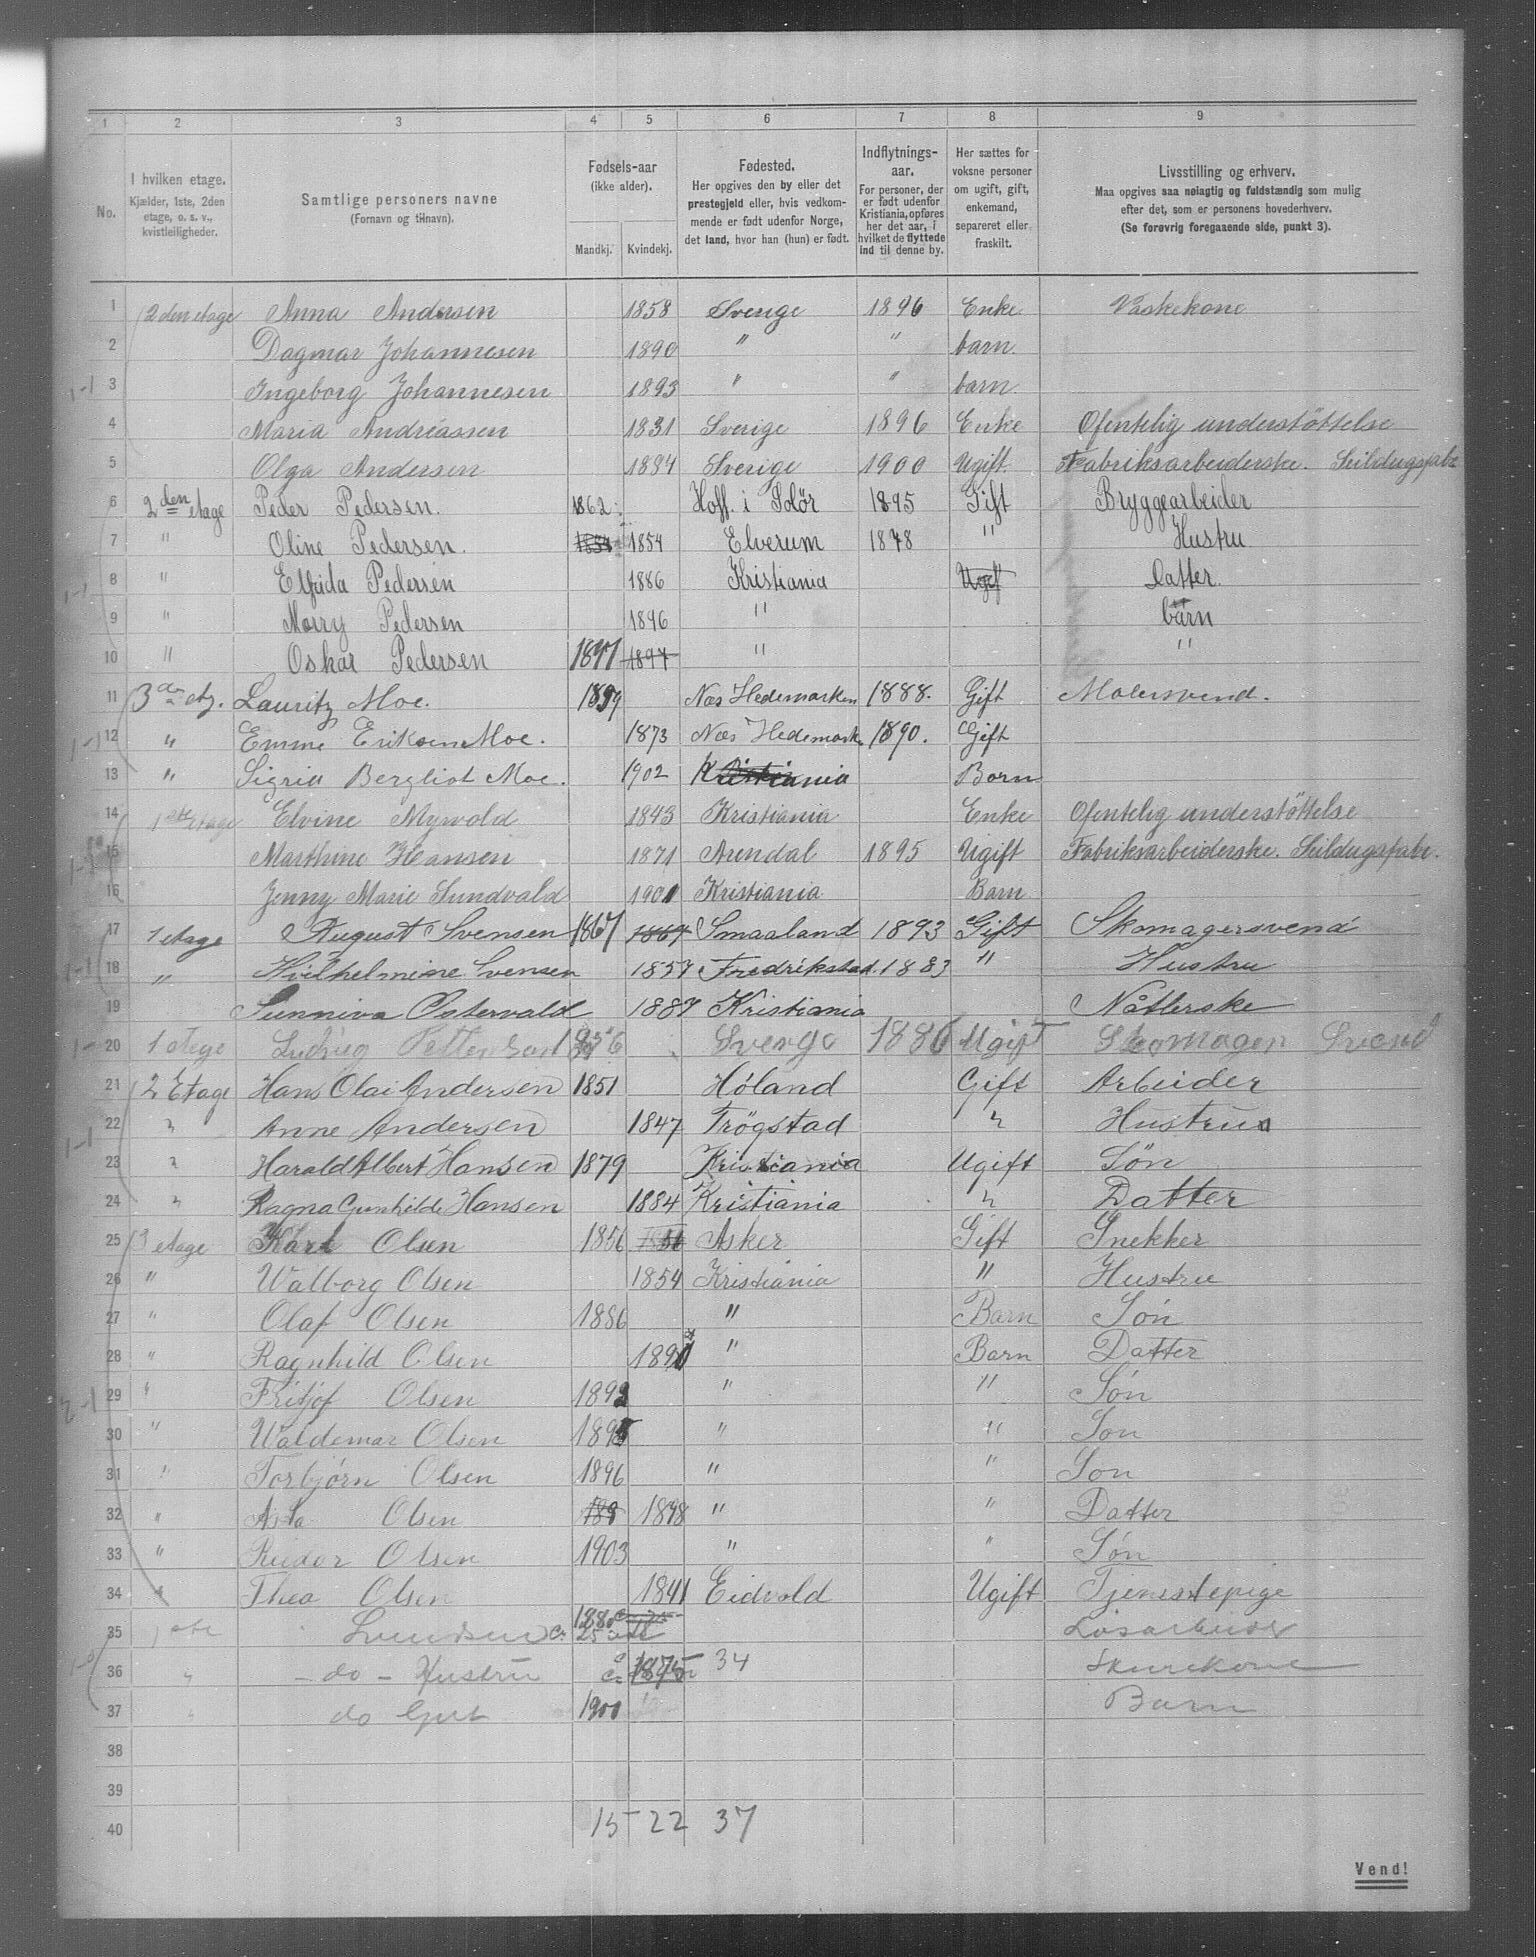 1 2 3 4 5 6 7 8 9
No.
I hvilken etage.
Kjælder, 1ste, 2den
etage, o. s. v.,
kvistleiligheder.
Samtlige personers navne
(Fornavn og tilnavn).
Fødsels-aar
(ikke alder).
Mandkj. Kvindekj.
Fødested.
Her opgives den by eller det
prestegjeld eller, hvis vedkom-
mende er født udenfor Norge,
det land, hvor han (hun) er født.
Indflytnings-
aar.
For personer, der
er født udenfor
Kristiania, opføres
her det aar, i
hvilket de flyttede
ind til denne by.
Her sættes for
voksne personer
om ugift, gift,
enkemand,
separeret eller
fraskilt.
Livsstilling og erhverv.
Maa opgives saa nøiagtig og fuldstændig som mulig
efter det, som er personens hovederhverv.
(Se forøvrig foregaaende side, punkt 3).
1 2 den etage Anna Andersen 1858 Sverige 1896 Enke Vaskekone
2 Dagmar Johannesen 1890 " " barn.
3 Ingeborg Johannesen 1893 " " barn.
4 Maria Andreassen 1831 Sverige 1896 Enke Ofentelig understöttelse
5 Olga Andersen 1884 Sverige 1900 Ugift Fabriksarbeiderske. Seildugsfabr
6 2 den etage Peder Pedersen. 1862 Hoff. i Solör 1895 Gift Bryggearbeider
7 " Oline Pedersen. 1854 1854 Elverum 1878 " Hustru
8 " Elfrida Pedersen 1886 Kristiania Ugif Datter.
9 " Morry Pedersen 1896 " barn
10 " Oskar Pedersen 1897 1897 " "
11 3 die etg. Lauritz Moe. 1859 Næs Hedemarken 1888. Gift Malersvend.
12 " Emme Eriksen Moe. 1873 Næs Hedemark. 1890. Gift
13 " Sigrid Bergliot Moe. 1902 Kristiania Barn
14 1 ste etage Elvine Myrvold 1843 Kristiania Enke Ofentelig understöttelse
15 Marthine Hansen 1871 Arendal 1895 Ugift Fabriksarbeiderske. Seildugsfabr.
16 Jenny Marie Sundvald 1901 Kristiania Barn
17 1 etage August Svensen 1867 1867 Smaaland 1893 Gift Skomagersvend
18 " Hvilhelmine Svensen 1857 Fredrikstad. 1883 " Hustru
19 Sunniva Østervald 1887 Kristiania Nåtlerske
20 1 etage Ludvig Petterson Sverge 1886 Ugift Skomager Svend
21 2 Etage Hans Olai Andersen 1851 Høland Gift Arbeider
22 " Anne Andersen 1847 Trögstad " Hustru
23 " Harald Albert Hansen 1879 Kristiania Ugift Søn
24 " Ragna Gunhilde Hansen 1884 Kristiania " Datter
25 3 etage Karl Olsen 1856 56 Asker Gift Snekker
26 " Walborg Olsen 1854 Kristiania " Hustru
27 " Olaf Olsen 1886 " Barn Søn
28 " Ragnhild Olsen 1890 " Barn Datter
29 " Fritjof Olsen 1892 " " Søn
30 " Waldemar Olsen 1895 " " Søn
31 " Torbjørn Olsen 1896 " " Søn
32 " Asta Olsen 189 1898 " " Datter
33 " Reidar Olsen 1903 " " Søn
34 " Thea Olsen 1841 Eidvold Ugift Tjenestepige
35 1 ste Svendsen c. 1880 Løsarbeider
36 " - do - Hustru c. 1875 34 Skurekone
37 " do Gut 1900 Barn
38
39
40 15 22 37
Vend!